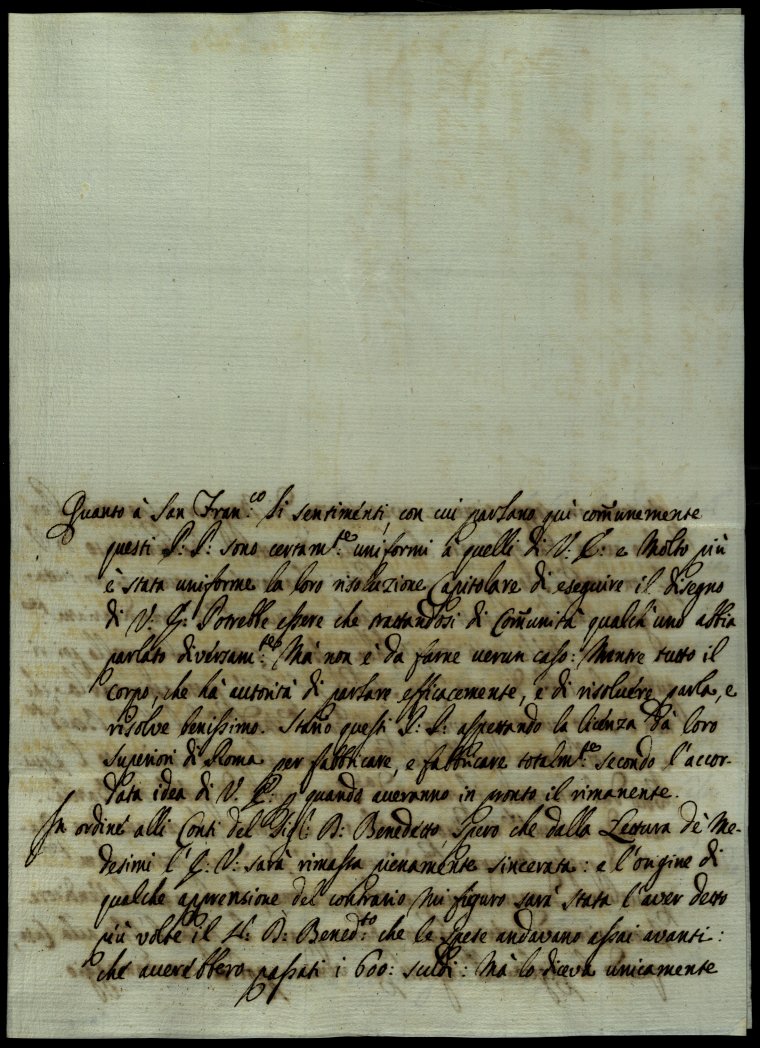 Quanto à San Fran:co li sentimenti, con cui parlano qui com̃unemente
questi P: P: sono certam:te uniformi à quelli di V: E: e Molto più
è stata uniforme la loro risoluzione Capitolare di eseguire il disegno
di V: E: Potrebbe essere che trattandosi di Com̃unità qualch'uno abbia
parlato diversam:te Mà non è da farne verun caso: Mentre tutto il
corpo, che hà autorità di parlare efficacemente, e di risolvére parla, e
risolve benissimo. Stano questi P: P: aspettando la licénza dà loro
Superiori di Roma per fabbricare, e fabbricare totalm:te secondo l'accor-
data idea di V. E: quando averanno in pronto il rimanente.
In ordine alli Conti del Sig: D: Benedetto, Spero che dalla Lettura de Me-
desimi l'E: V: sarà rimassa pienamente sincerata: e l'origine di
qualche apprensione del contrario mi figuro sarà stata l'aver detto
più volte il S: D: Bened:to che le spese andavano assai avanti:
che averebbero passati i 600: scudi: Mà lo diceva unicamente